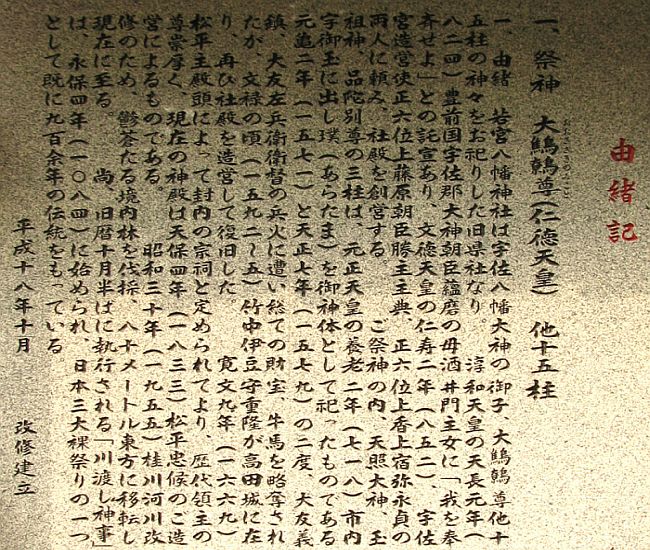 由緒記
一、祭神　大鷦鷯尊(仁徳天皇)　他十五柱
おおささぎのみこと
一、由緒　若宮八幡神社は宇佐八幡大神の御子、大鷦鷯尊他十
五柱の神々をお祀りした旧県社なり。　淳和天皇の天長元年(
八二四)豊前国宇佐郡大神朝臣蘊磨の母酒井門主女に「我を奉
斉せよ」との託宣あり、文徳天皇の仁寿二年(八五二)　宇佐
宮造営使正六位上藤原朝臣勝王主典、正六位上香上宿弥永貞の
両人に頼み、社殿を創営する　　ご祭神の内、天照大神、玉
祖神、品陀別尊の三柱は、元正天皇の養老二年(七一八)市内
字御玉に出し璞(あらたま)を御神体として祀ったものである
元亀二年(一五七一)と天正七年(一五七九)の二度　大友義
鎮、大友左兵衛督の兵火に遭い総ての財宝、牛馬を略奪され
たが、文禄の頃(一五九二〜五)竹中伊豆守重隆が高田城に在
り、再び社殿を造営して復旧した。　　寛文九年(一六六九)
松平主殿頭によって封内の宗祠と定められてより、歴代領主の
尊崇厚く、現在の神殿は天保四年(一八三三)松平忠候のご造
営によるものである。　　昭和三十年(一九五五)桂川河川改
修のため、鬱蒼たる境内林を伐採、八十メートル東方に移転し
現在に至る。　尚　旧暦十月半ばに執行される「川渡し神事」
は、永保四年(一〇八四)に始められ、日本三大裸祭りの一つ
として既に九百余年の伝統をもっている
平成十八年十月　　改修建立